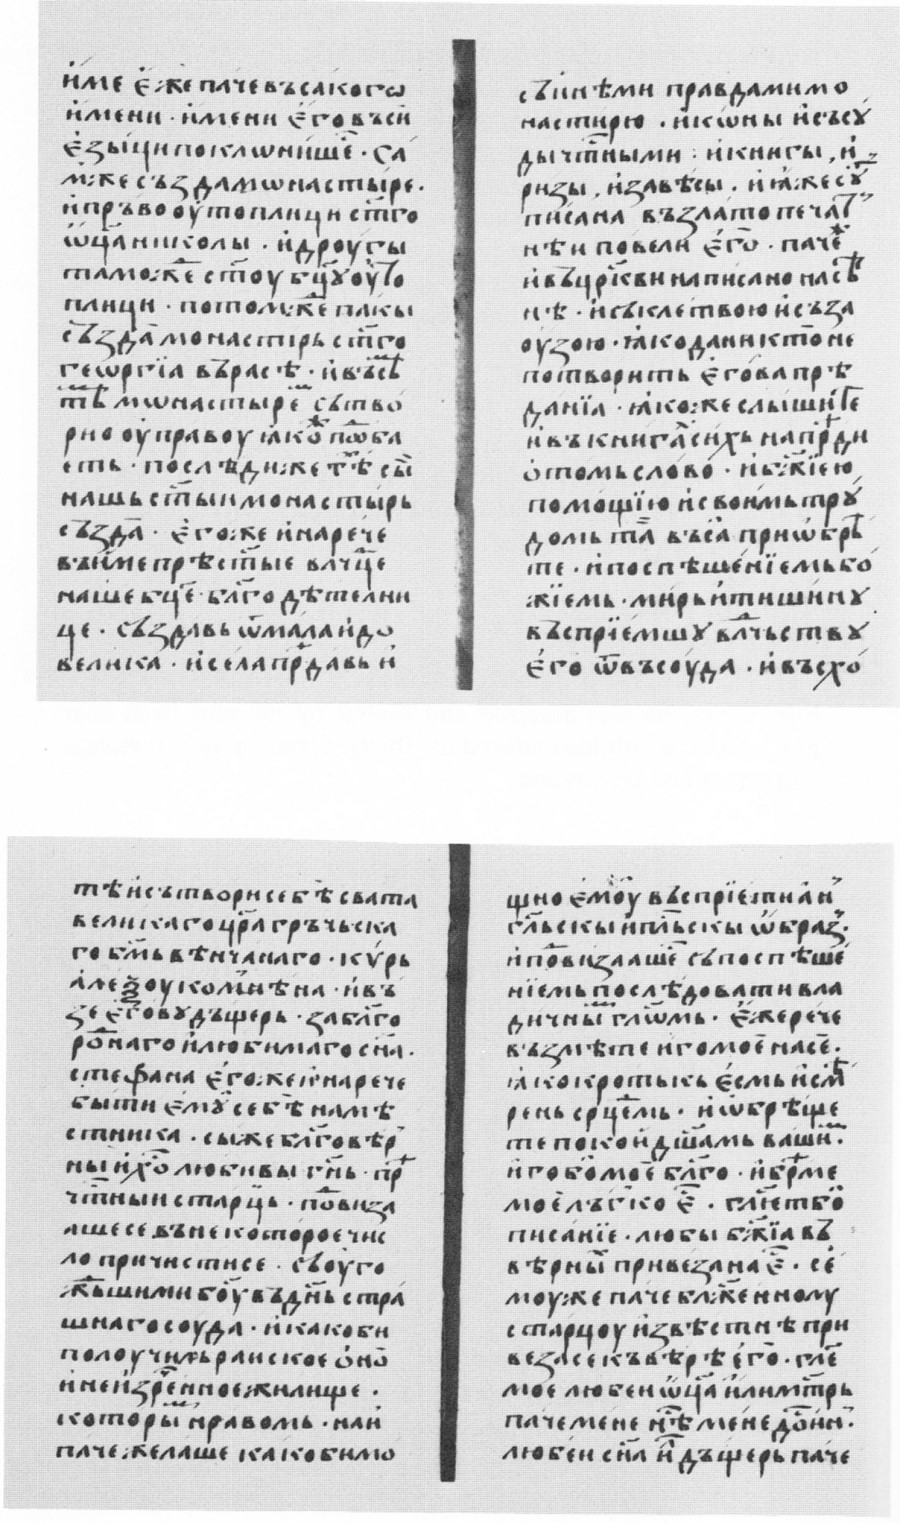 и́ме є́же паче въсакого
и́мени · и́мени є҆го въси
є҆зыци поклѡнише · са
м же създа мѡнастыре ·
и҆ пръво оу҆ топлици ст҃го
ѡ҆ц҃а николы · и҆ дроугы
таможе с҃тоу бц҃оу оу҆ то
плици · потом же пакы
създа монастирь ст҃го
геѡргїа въ расѣ · и҆ въ сѣ
тѣ мѡнастыре сътво
рно оу правоу ꙗко поба
еть · послѣди же т҃ѣ сы
нашь ст҃ыи монастырь
създа · є҆го же и҆ нарече
въ и́ме прѣст҃ые влч҃це
наше бц҃е · бл҃годѣтелни
це · създавь ѿ мала и҆ до
велика · и҆ села прⷣдавь и҆
сь инѣми правдами мо
настирю · и҆кѡны и҆ съсѹ
ды чт҃ными : и҆ книгы , и҆
ризы , и҆ завѣсы . и҆ ꙗже сѹ
писана въ златопечат
нѣи повели є҆го · паче
и҆ въ цр҃кви написано нас
нѣ · и҆ съ клетвою и҆ съ за
оузою · ꙗко да никто не
потворить є҆гова прѣ
данїа · ꙗкоже слышите
и҆ въ книгах сихь напрⷣди
о҆ томь слово · и҆ бж҃їею
помощїю и҆ своимь трѹ
домь та въса приѡбрѣ
те · и҆ поспѣшенїемь бо
жїемь · мирь и҆ тишинѹ
въспрїемшѹ влⷣчьствѹ
є҆го ѿвъсоуда · и҆ въсхо
тѣ и҆ сътвори себѣ свата
великаго цр҃а гръчьска
го б҃мь вѣнчанаго · кѵрь
алеѯоу комнѣна · и҆ въ
зе є҆говѹ дъщерь · за бл҃го
роⷣнаго и҆ любимаго сн҃а .
стефана є҆го же и҆ нарече
быти є҆мѹ себѣ намѣ
стника · сы же бл҃говѣр
ны и҆ хо҃любивы г҃нь · прѣ
чт҃ныи старць · поⷣвиза
аше се въ некоторое чис
ло причисти се · своуго
жⷣьшими боу҃ въ дн҃ь стра
шнаго соуда · и҆ како би
полоучиль раиское о҆но
и҆ неизрⷣенное жилище .
которы нравомь · наи
паче желаше како би мо
щно є҆моу въспрїети а҆н
гл҃ьскы и҆ пл҃ьскы ѡ҆браз .
и҆ поⷣвизааше съ поспѣше
нїемь последовати вла
дичны гл҃ѡмь · є҆же рече
възмѣте и҆го моє на се .
ꙗко кротькь є҆смь и҆ смѣ
рень срⷣцемь · и҆ ѡ҆брѣще
те покои дш҃амь ваши .
и҆го бо моє бл҃го · и҆ брⷨе
моє льгко є҆ · гл҃еть бо
писанїе · любы бж҃їа въ
вѣрны привезана є҆ · се
моу же паче бл҃женномѹ
старцоу и҆звѣстнѣ при
веза се къ вѣрѣ є҆го · гл҃е
мое любеи ѡ҆ц҃а и҆ли мт҃рь
паче мене нⷭ҇ѣ мене доⷭ҇ин .
любеи сн҃а и҆ дъщерь паче